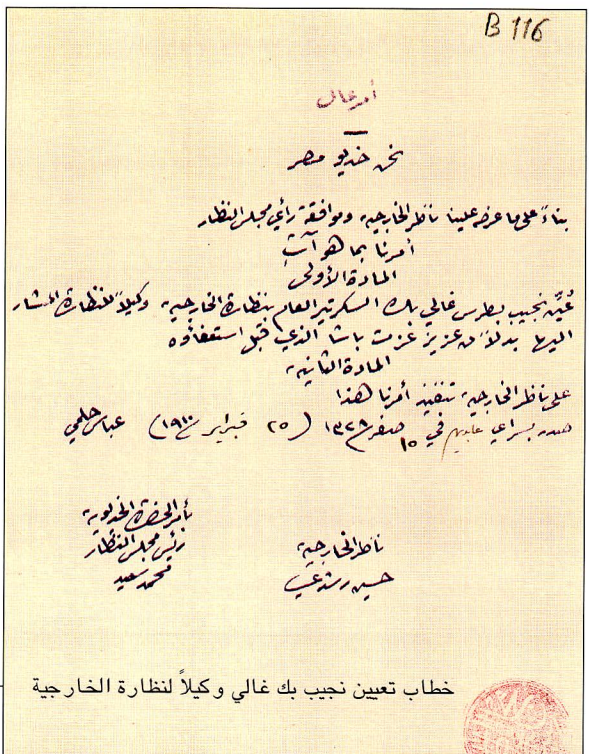 B 116
أمر عال
نحن خديو مصر
بناءً على ما عرضه علينا ناظر الخارجية وموافقة رأي مجلس النظار
أمرنا بما هو آت
المادة الأولى
عُيّن نجيب بطرس غالي بك السكرتير العام بنظارة الخارجية وكيلاً للنظارة المشار
اليها بدلاً من عزيز عزت باشا الذي قبل استعفاؤه
المادة الثانية
على ناظر الخارجية تنفيذ أمرنا هذا
صدر بسراي عابدين في ١٥ صفر ١٣٢٨ (٢٥ فبراير ١٩١٠) عباس حلمي
بأمر الحضرة الخديوية
ناظر الخارجية رئيس مجلس النظار
حسين رشدي محمد سعيد
خطاب تعيين نجيب بك غالي وكيلاً لنظارة الخارجية